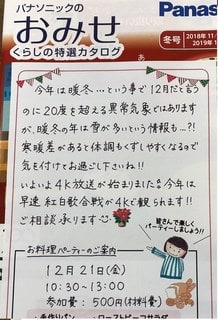 パナソニックの
おみせ
くらしの特選カタログ
Panas
冬号
2018年11
2019年1
今年は暖冬…という事で12月だと言う
のに20度を超える異常気象ではあります
が、暖冬の年は雪が多いという情報も…?!
寒暖差があると体調もくずしやすくなるので
気を付けてお過ごし下さいね!!
いよいよ4K放送が始まりました♫今年は
早速 紅白歌合戦が4Kで観れます!!
ご相談承ります
お料理パーティーのご案内
12月21日(金)
10:30〜13:00
参加費:500円(材料費)
皆さんで楽しく
パーティーしましょう!!
・手作りパン
・ローストビーフサラダ